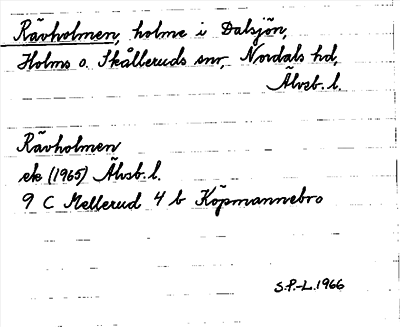 Rävholmen, holme i Dalsjön,
Holms o. Skålleruds snr, Nordals hd,
Älvsb. l.
Rävholmen
ek (1965) Älvsb. l.
9 C Mellerud 4 b Köpmannebro
S.P.-L. 1966